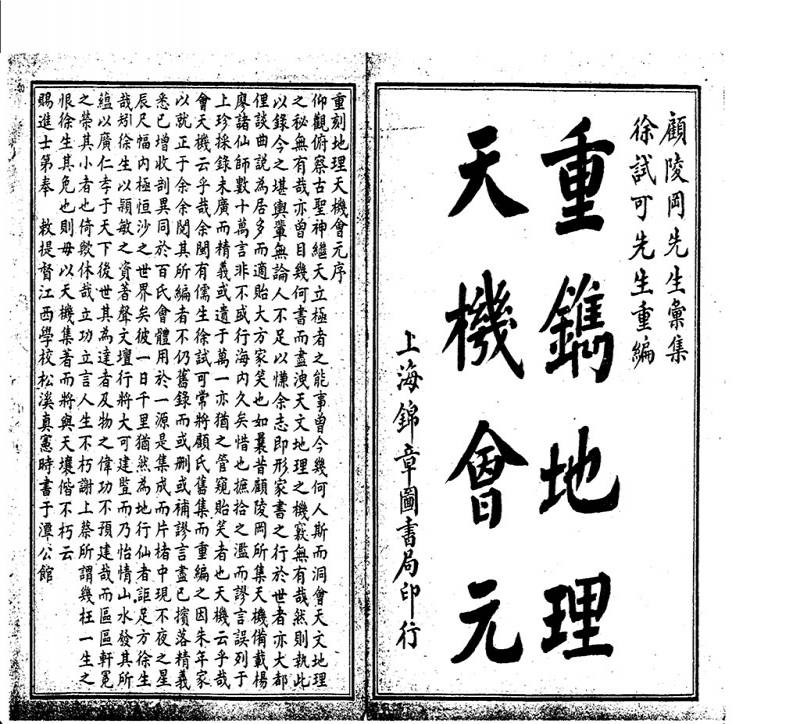 顧陵岡先生彙集
徐試可先生重編
重鐫地理
天機會元
上海錦章圖書局印行
重刻地理天機會元序
仰觀俯察古聖神繼天立極者之能事曾今幾何人斯而洞會天文地理
之秘無有哉亦曾目幾何書而盡洩天文地理之機竅無有哉然則執此
以錄今之堪輿輩無論人不足以慊余志即形家書之行於世者亦大都
俚談曲説為居多而適貽大方家笑也如曩昔顧陵岡所集天機備載楊
廖諸仙師數十萬言非不盛行海內久矣惜也摭拾之濫而謬言誤列于
上珍採錄未廣而精義或遺于萬一亦猶之管窺貽笑者也天機云乎哉
會天機云乎哉余閱有儒生徐試可常將顧氏舊集而重編之因朱年家
以就正于余余閱其所編者不仍舊錄而或刪或補謬言盡已擯落精義
悉已增收剖異同於百氏會體用於一源是集成而片楮中現不夜之星
辰尺幅內極恒沙之世界矣彼一日千里猶然為地行仙者詎足方徐生
哉矧徐生以頴敏之資著聲文壇行將大可建豎而乃怙情山水發其所
蘊以廣仁孝于天下後世其為達者及物之偉功不預建哉而區區軒冕
之榮其小者也倚歟休哉立功立言人生不朽謝上蔡所謂幾枉一生之
恨徐生其免也則毋以天機集著而將與天壤偕不朽云
賜進士第奉　敕提督江西學校松溪真憲時書于潭公館